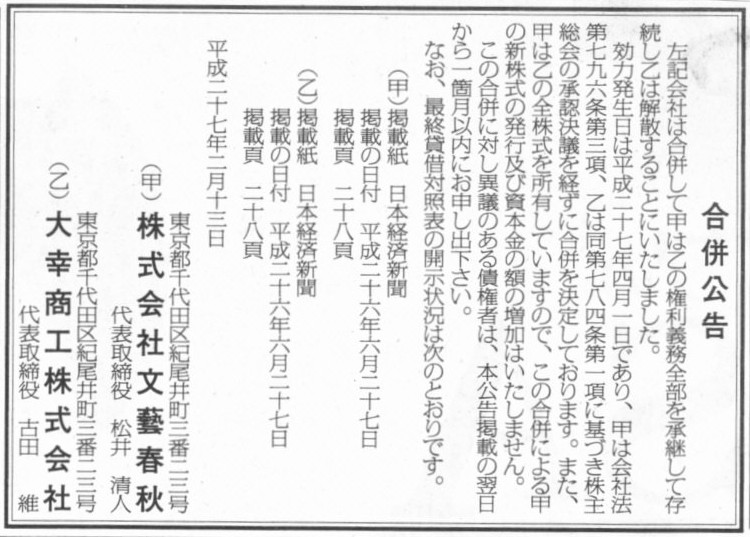 合併公告
左記会社は合併して甲は乙の権利義務全部を承継して存
続し乙は解散することにいたしました。
効力発生日は平成二十七年四月一日であり、甲は会社法
第七九六条第三項、乙は同第七八四条第一項に基づき株主
総会の承認決議を経ずに合併を決定しております。また、
甲は乙の全株式を所有していますので、この合併による甲
の新株式の発行及び資本金の額の増加はいたしません。
この合併に対し異議のある債権者は、本公告掲載の翌日
から一箇月以内にお申し出下さい。
なお、最終貸借対照表の開示状況は次のとおりです。
(甲)掲載紙 日本経済新聞
掲載の日付 平成二十六年六月二十七日
掲載頁 二十八頁
(乙)掲載紙 日本経済新聞
掲載の日付 平成二十六年六月二十七日
掲載頁 二十八頁
平成二十七年二月十三日
東京都千代田区紀尾井町三番二三号
(甲)株式会社文藝春秋
代表取締役 松井 清人
東京都千代田区紀尾井町三番二三号
(乙)大幸商工株式会社
代表取締役 古田 維